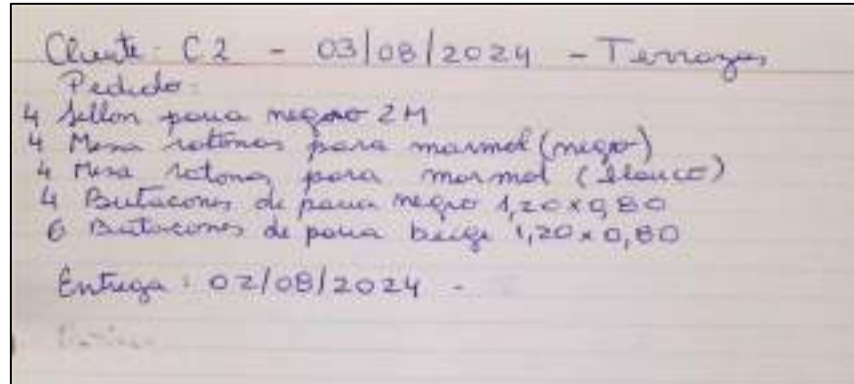 Cliente: C2 - 03/08/2024 - Terrazas
Pedido:
4 Sillon paua negro 2M
4 Mesa ratonas para marmol (negro)
4 Mesa ratonas para marmol (blanco)
4 Butacones de paua negro 1,20 x 0,80
6 Butacones de paua beige 1,20 x 0,80
Entrega: 02/08/2024 -